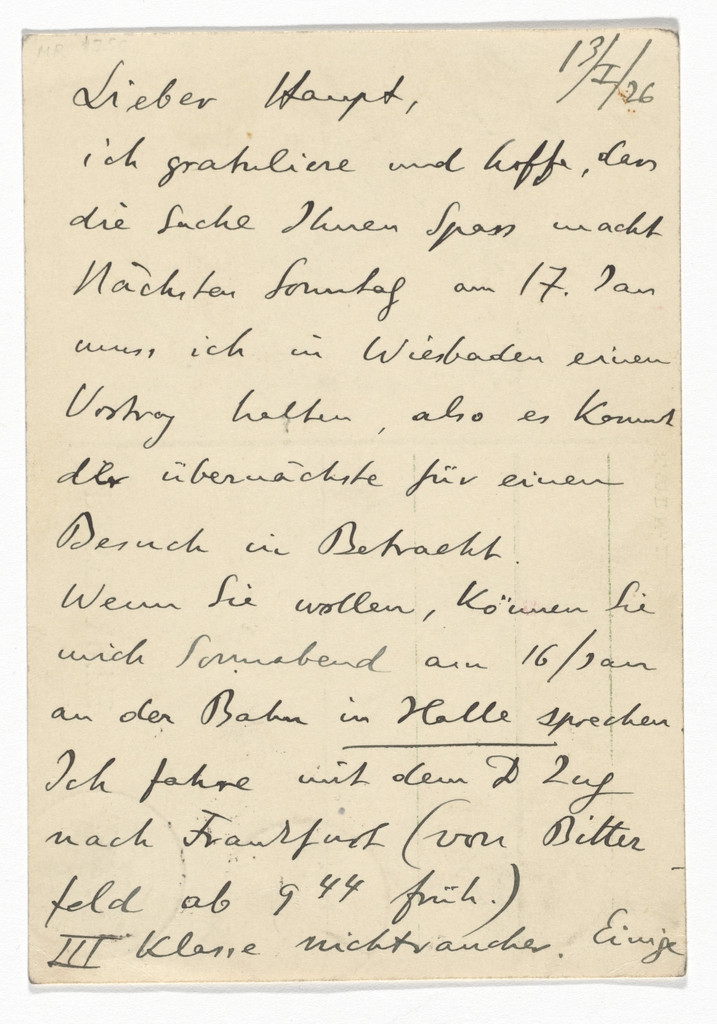 13/I/26
Lieber Haupt,
ich gratuliere und hoffe, dass
die Sache Ihnen Spass macht
Nächsten Sonntag am 17. Jan
muss ich in Wiesbaden einen
Vortrag halten, also es kommt
der übernächste für einen
Besuch in Betracht.
Wenn Sie wollen, können Sie
mich Sonnabend am 16/Jan
an der Bahn in Halle sprechen.
Ich fahre mit dem D Zug
nach Frankfurt (von Bitter
feld ab 9 44 früh.)
III Klasse nichtraucher. Einige